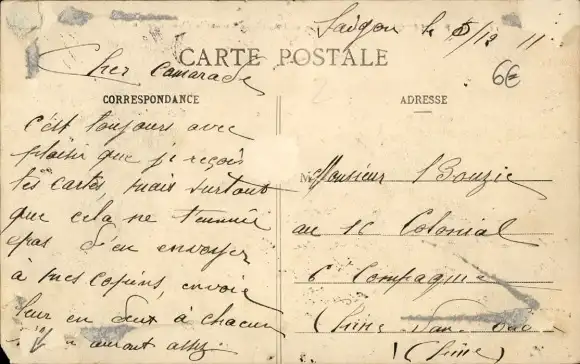 Saigon le 5/12 11
CARTE POSTALE
6€
Cher Camarade
CORRESPONDANCE
ADRESSE
c'est toujours avec
plaisir que je reçois
tes cartes, mais surtout
que cela ne t'ennuie
pas d'en envoyer
à mes copins, envoie
leur en deux à chacun
auront assez.
Monsieur Bouzie
au 16 Colonial
6 Compagnie
Chine
(Chine)